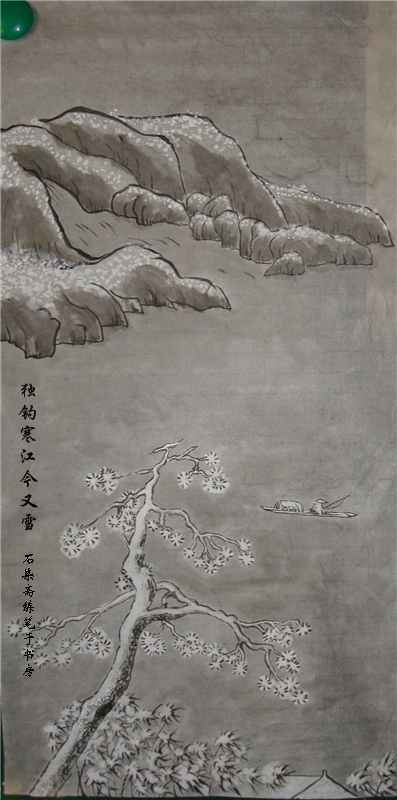 独钓寒江今又雪
石柒斋练笔于书房